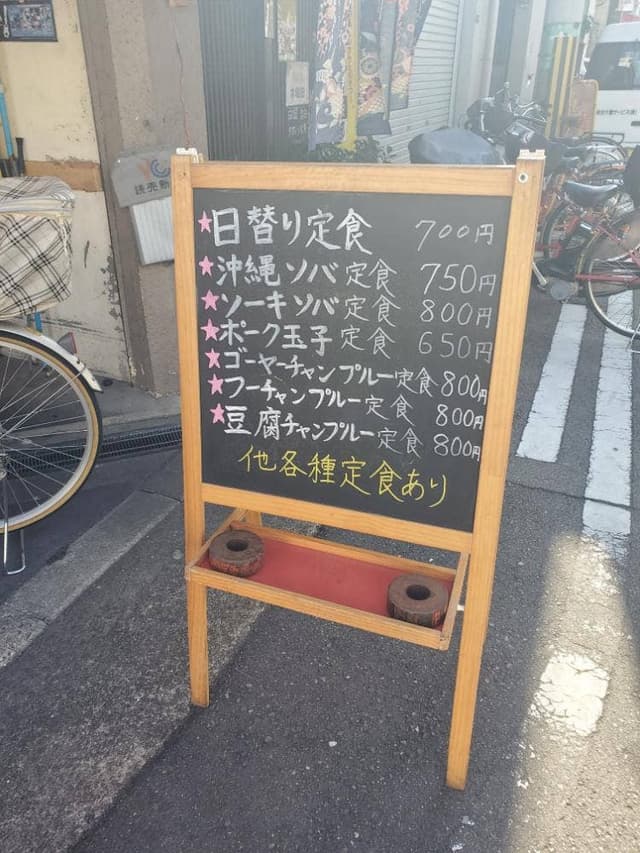 ★日替り定食 700円
★沖縄ソバ定食 750円
★ソーキソバ定食 800円
★ポーク玉子定食 650円
★ゴーヤーチャンプルー定食 800円
★フーチャンプルー定食 800円
★豆腐チャンプルー定食 800円
他各種定食あり
読売新